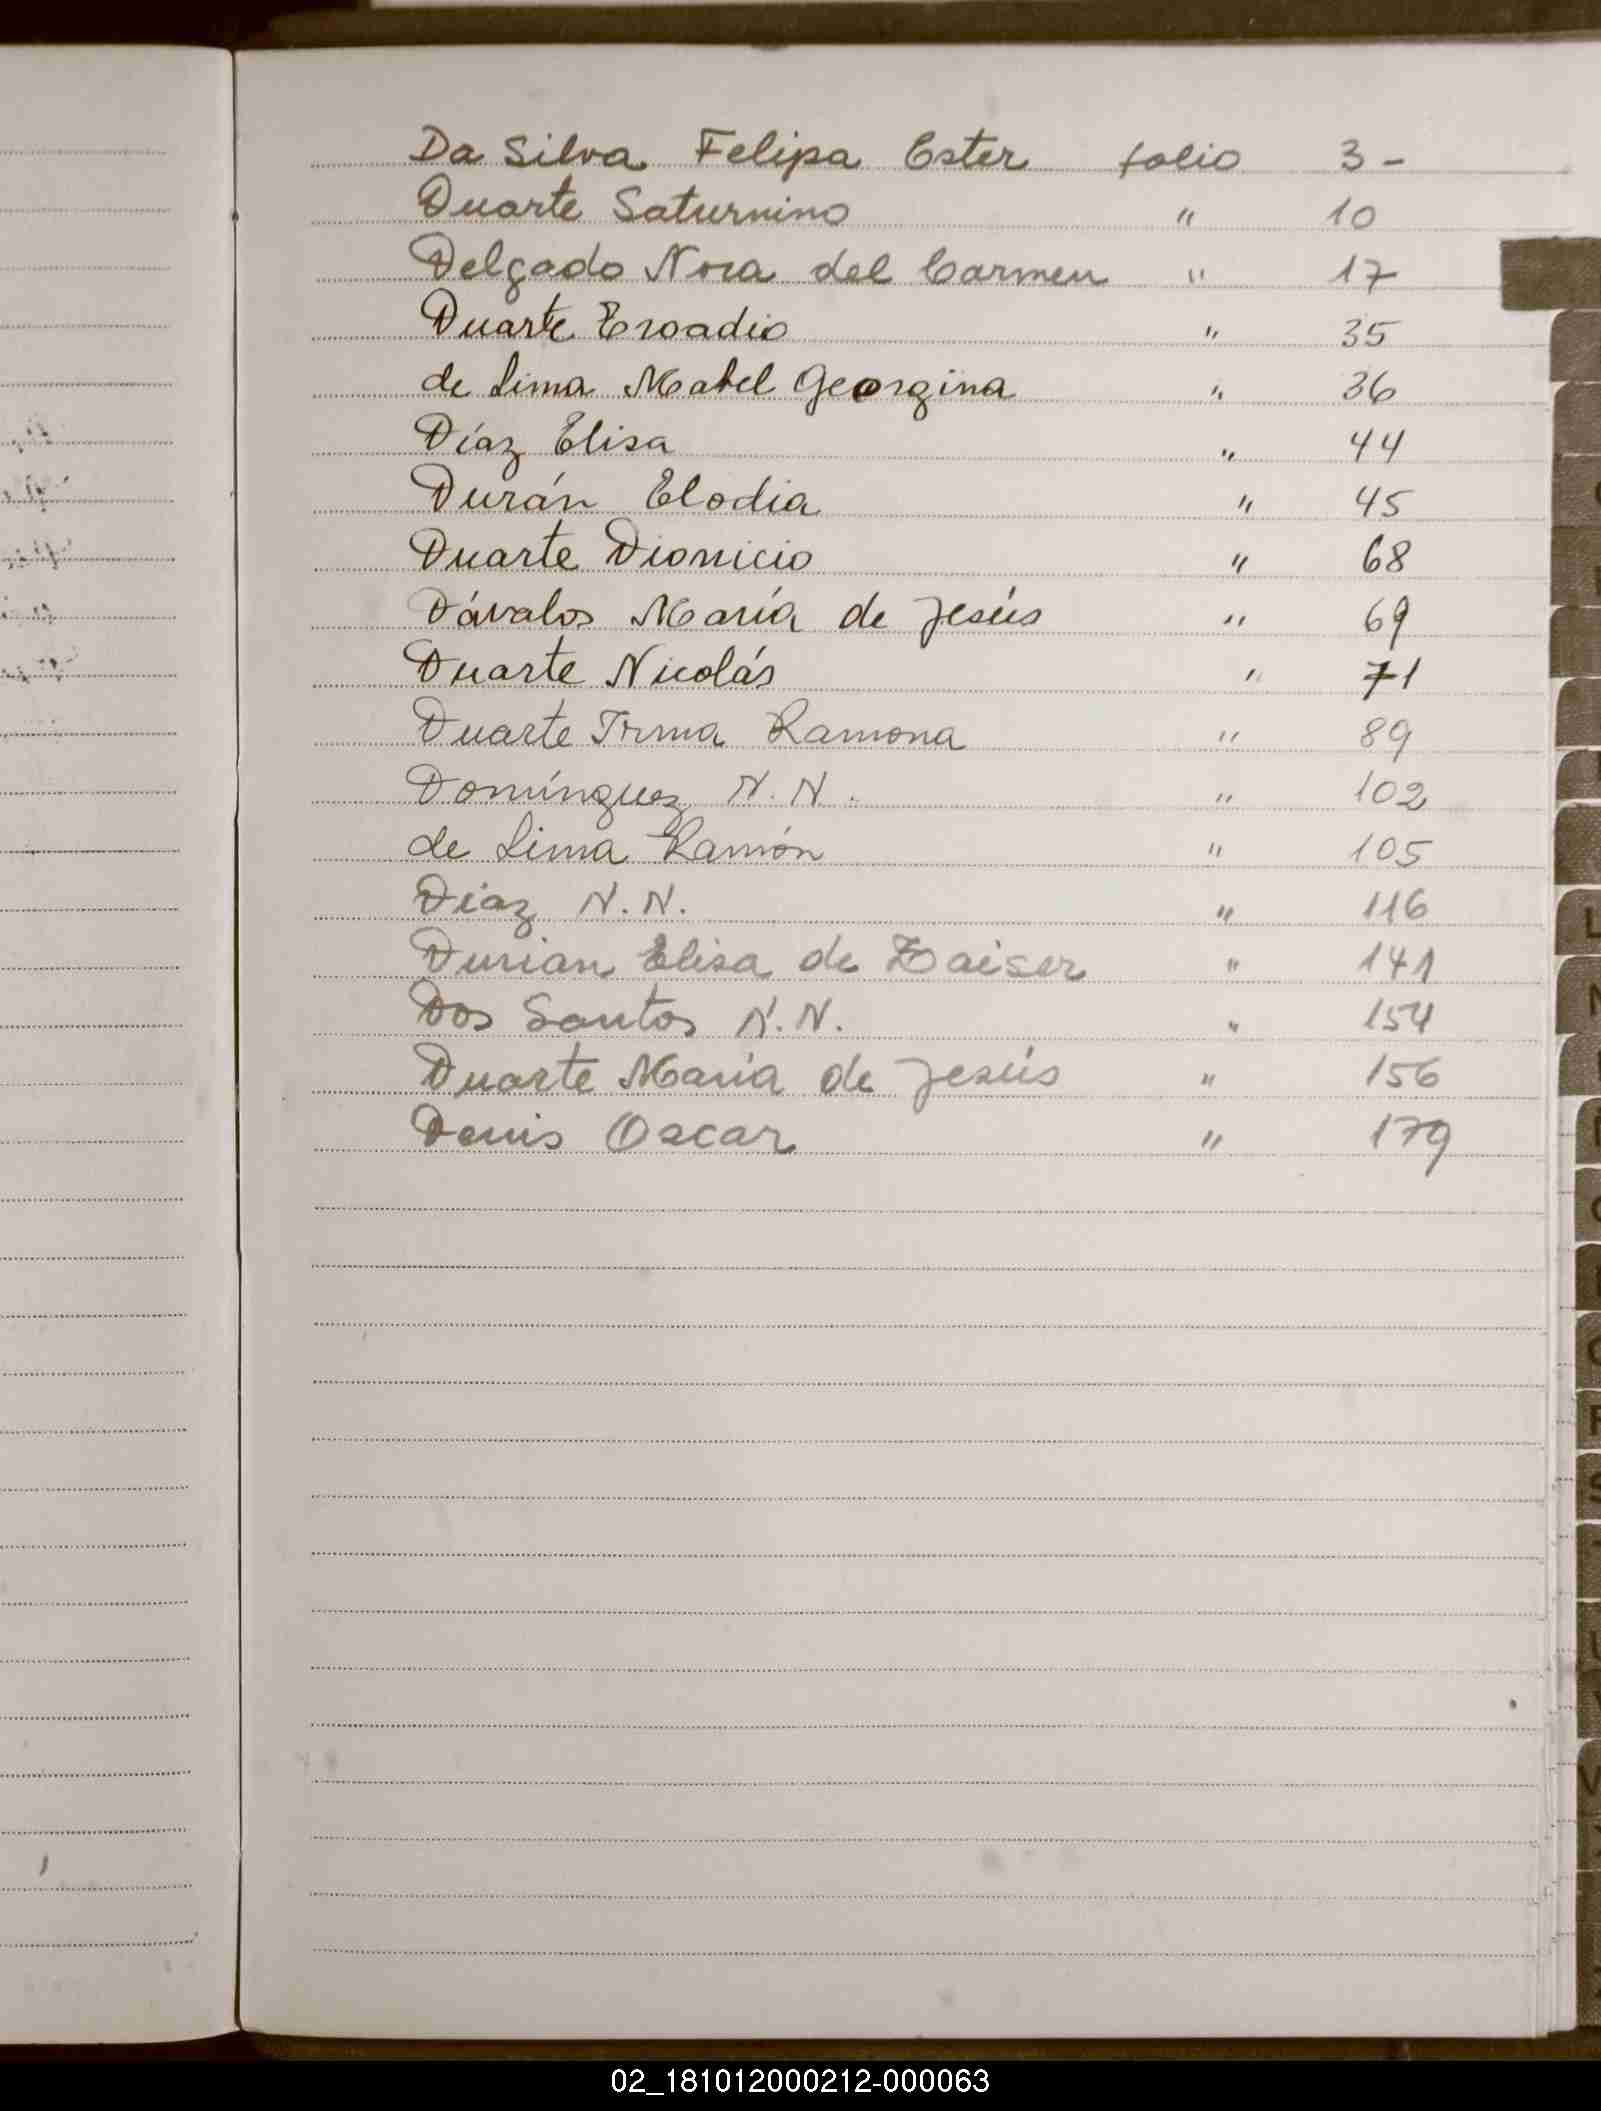 Da Silva Felipa Ester folio 3 -
Duarte Saturnino " 10
Delgado Nora del Carmen " 17
Duarte Eroadio " 35
de Lima Mabel Georgina " 36
Díaz Elisa " 44
Durán Elodia " 45
Duarte Dionicio " 68
Dávalos María de Jesús " 69
Duarte Nicolás " 71
Duarte Irma Ramona " 89
Domínguez N. N. " 102
de Lima Ramón " 105
Díaz N. N. " 116
Elisa de " 141
Dos Santos N. N. " 154
Duarte María de Jesús " 156
Denis Oscar " 179
02_181012000212-000063